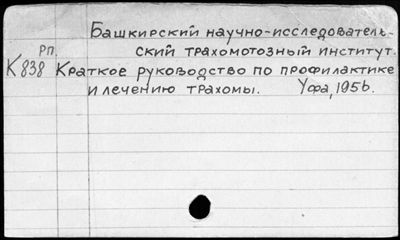 Башкирский научно-исследователь-
ский трахомотозный институт.
Рп.
К 838 Краткое руководство по профилактике
и лечению трахомы. Уфа, 1956.